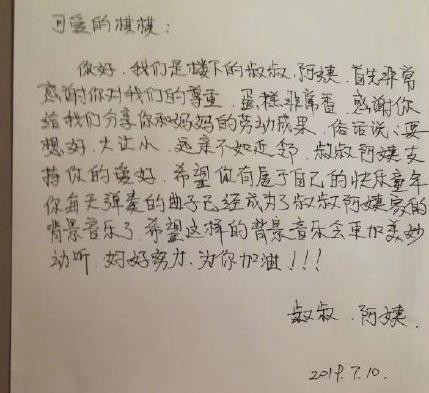 可爱的棋棋：
你好，我们是楼下的叔叔、阿姨，首先非常
感谢你对我们的尊重，蛋糕非常香，感谢你
给我们分享你和妈妈的劳动成果，俗话说：要
想好，大让小，远亲不如近邻，叔叔阿姨支
持你的爱好，希望你有属于自己的快乐童年
你每天弹奏的曲子已经成为了叔叔阿姨家的
背景音乐了，希望这样的背景音乐会更加美妙
动听，好好努力，为你加油！！！
叔叔、阿姨
2019.7.10.